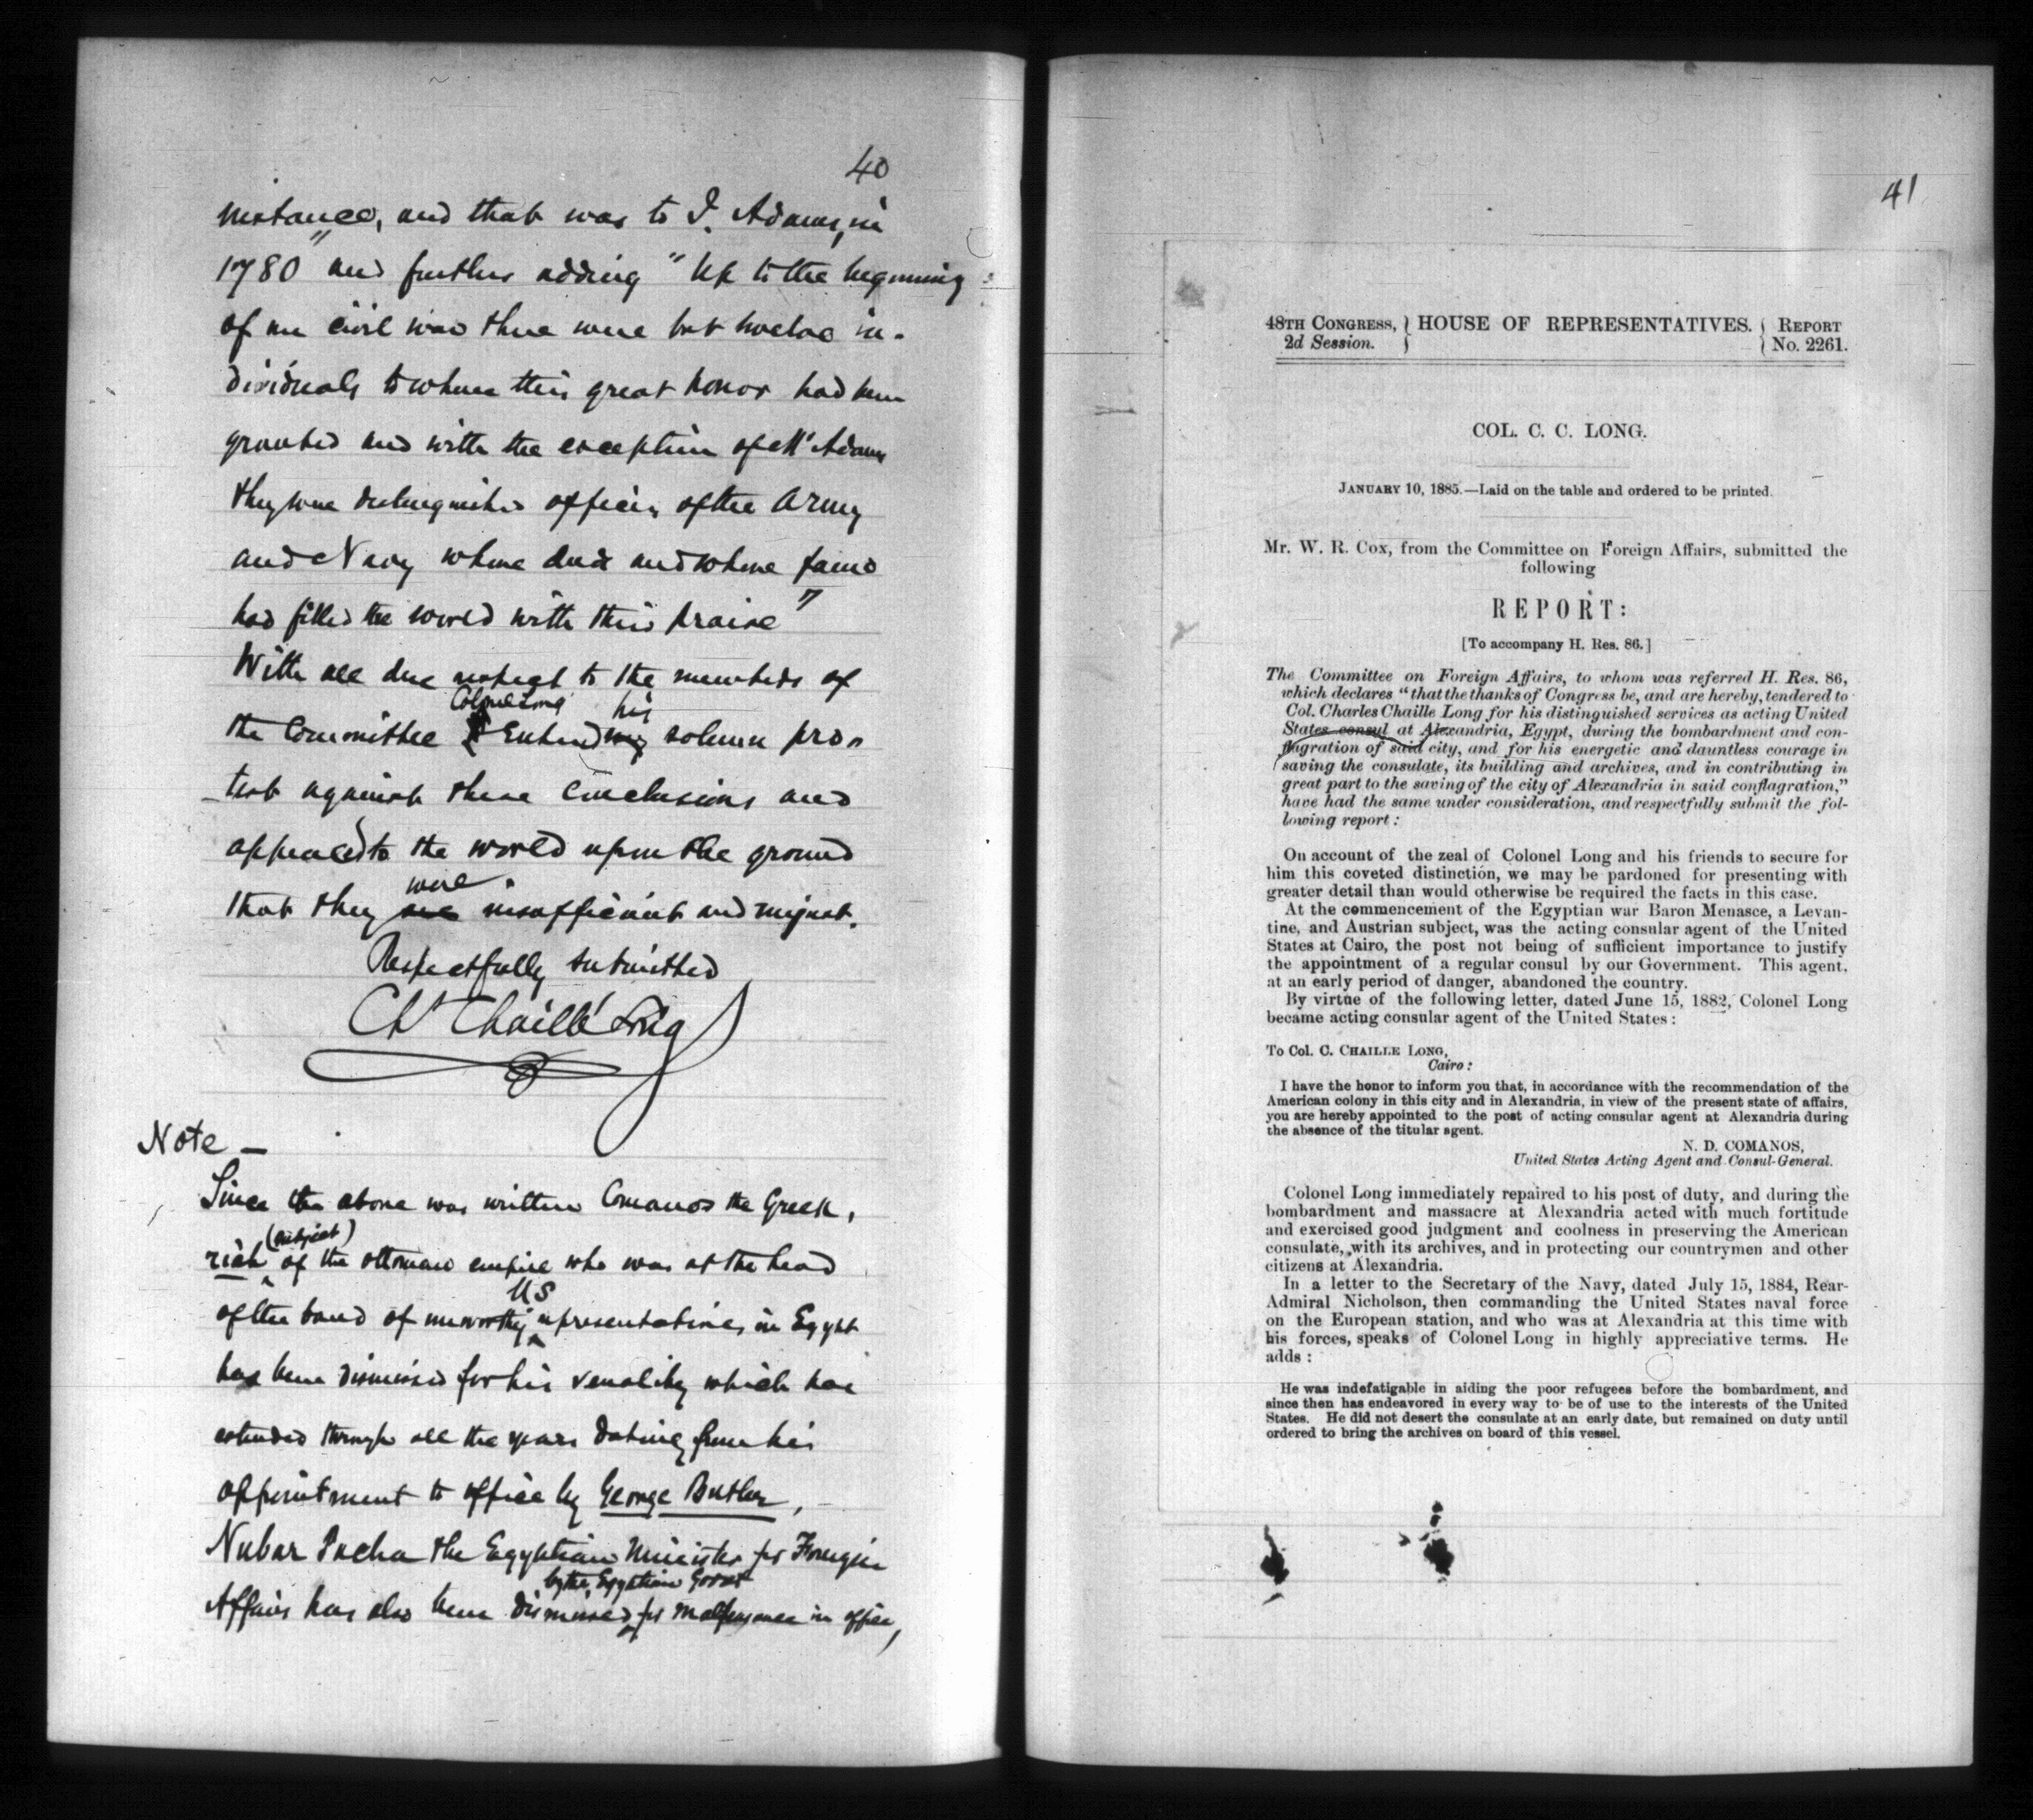 40
instance, and that was to J. Adams, in
1780" and further adding "Up to the beginning
of our civil war there were but twelve in-
dividuals to whom this great honor had been
granted and with the exception of Mr Adams
they were distinguished officers of the Army
and Navy whose deeds and whose fame
had filled the world with their praise"
With all due respect to the members of
Colonel Long his
the Committee I Entered my solemn pro-
test against these conclusions and
appealed to the world upon the ground
were
that they are insufficient and unjust.
Respectfully submitted
Ch Chaillé Long
Note —
Since the above was written Comanos the Greek,
(subject)
riah of the ottoman empire who was at the head
US
of the band of unworthy representatives in Egypt
has been dismissed for his venality which has
extended through all the years dating from his
appointment to office by George Butler,
Nubar Pacha the Egyptian Minister for Foreign
by the Egyptian Govnt
Affairs has also been dismissed for malfeasance in office,
41
48TH CONGRESS, } HOUSE OF REPRESENTATIVES. { REPORT
2d Session. } { No. 2261.
COL. C. C. LONG.
JANUARY 10, 1885.—Laid on the table and ordered to be printed.
Mr. W. R. Cox, from the Committee on Foreign Affairs, submitted the
following
REPORT:
[To accompany H. Res. 86.]
The Committee on Foreign Affairs, to whom was referred H. Res. 86,
which declares "that the thanks of Congress be, and are hereby, tendered to
Col. Charles Chaille Long for his distinguished services as acting United
States consul at Alexandria, Egypt, during the bombardment and con-
flagration of said city, and for his energetic and dauntless courage in
saving the consulate, its building and archives, and in contributing in
great part to the saving of the city of Alexandria in said conflagration,"
have had the same under consideration, and respectfully submit the fol-
lowing report:
On account of the zeal of Colonel Long and his friends to secure for
him this coveted distinction, we may be pardoned for presenting with
greater detail than would otherwise be required the facts in this case.
At the commencement of the Egyptian war Baron Menasce, a Levan-
tine, and Austrian subject, was the acting consular agent of the United
States at Cairo, the post not being of sufficient importance to justify
the appointment of a regular consul by our Government. This agent,
at an early period of danger, abandoned the country.
By virtue of the following letter, dated June 15, 1882, Colonel Long
became acting consular agent of the United States:
To Col. C. CHAILLE LONG,
Cairo:
I have the honor to inform you that, in accordance with the recommendation of the
American colony in this city and in Alexandria, in view of the present state of affairs,
you are hereby appointed to the post of acting consular agent at Alexandria during
the absence of the titular agent.
N. D. COMANOS,
United States Acting Agent and Consul-General.
Colonel Long immediately repaired to his post of duty, and during the
bombardment and massacre at Alexandria acted with much fortitude
and exercised good judgment and coolness in preserving the American
consulate, with its archives, and in protecting our countrymen and other
citizens at Alexandria.
In a letter to the Secretary of the Navy, dated July 15, 1884, Rear-
Admiral Nicholson, then commanding the United States naval force
on the European station, and who was at Alexandria at this time with
his forces, speaks of Colonel Long in highly appreciative terms. He
adds:
He was indefatigable in aiding the poor refugees before the bombardment, and
since then has endeavored in every way to be of use to the interests of the United
States. He did not desert the consulate at an early date, but remained on duty until
ordered to bring the archives on board of this vessel.